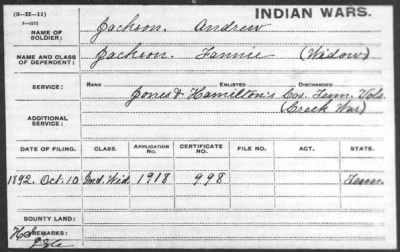 (3-II-11)
INDIAN WARS.
NAME OF SOLDIER: Jackson. Andrew
NAME AND CLASS OF DEPENDENT: Jackson. Fannie (Widow)
SERVICE: RANK ENLISTED DISCHARGED
Jones & Hamilton's Cos. Tenn. Vols.
(Creek War)
ADDITIONAL SERVICE:
DATE OF FILING. CLASS. APPLICATION NO. CERTIFICATE NO. FILE NO. ACT. STATE.
1892. Oct. 10 Ind. Wid. 1918 998 Tenn.
BOUNTY LAND:
REMARKS: